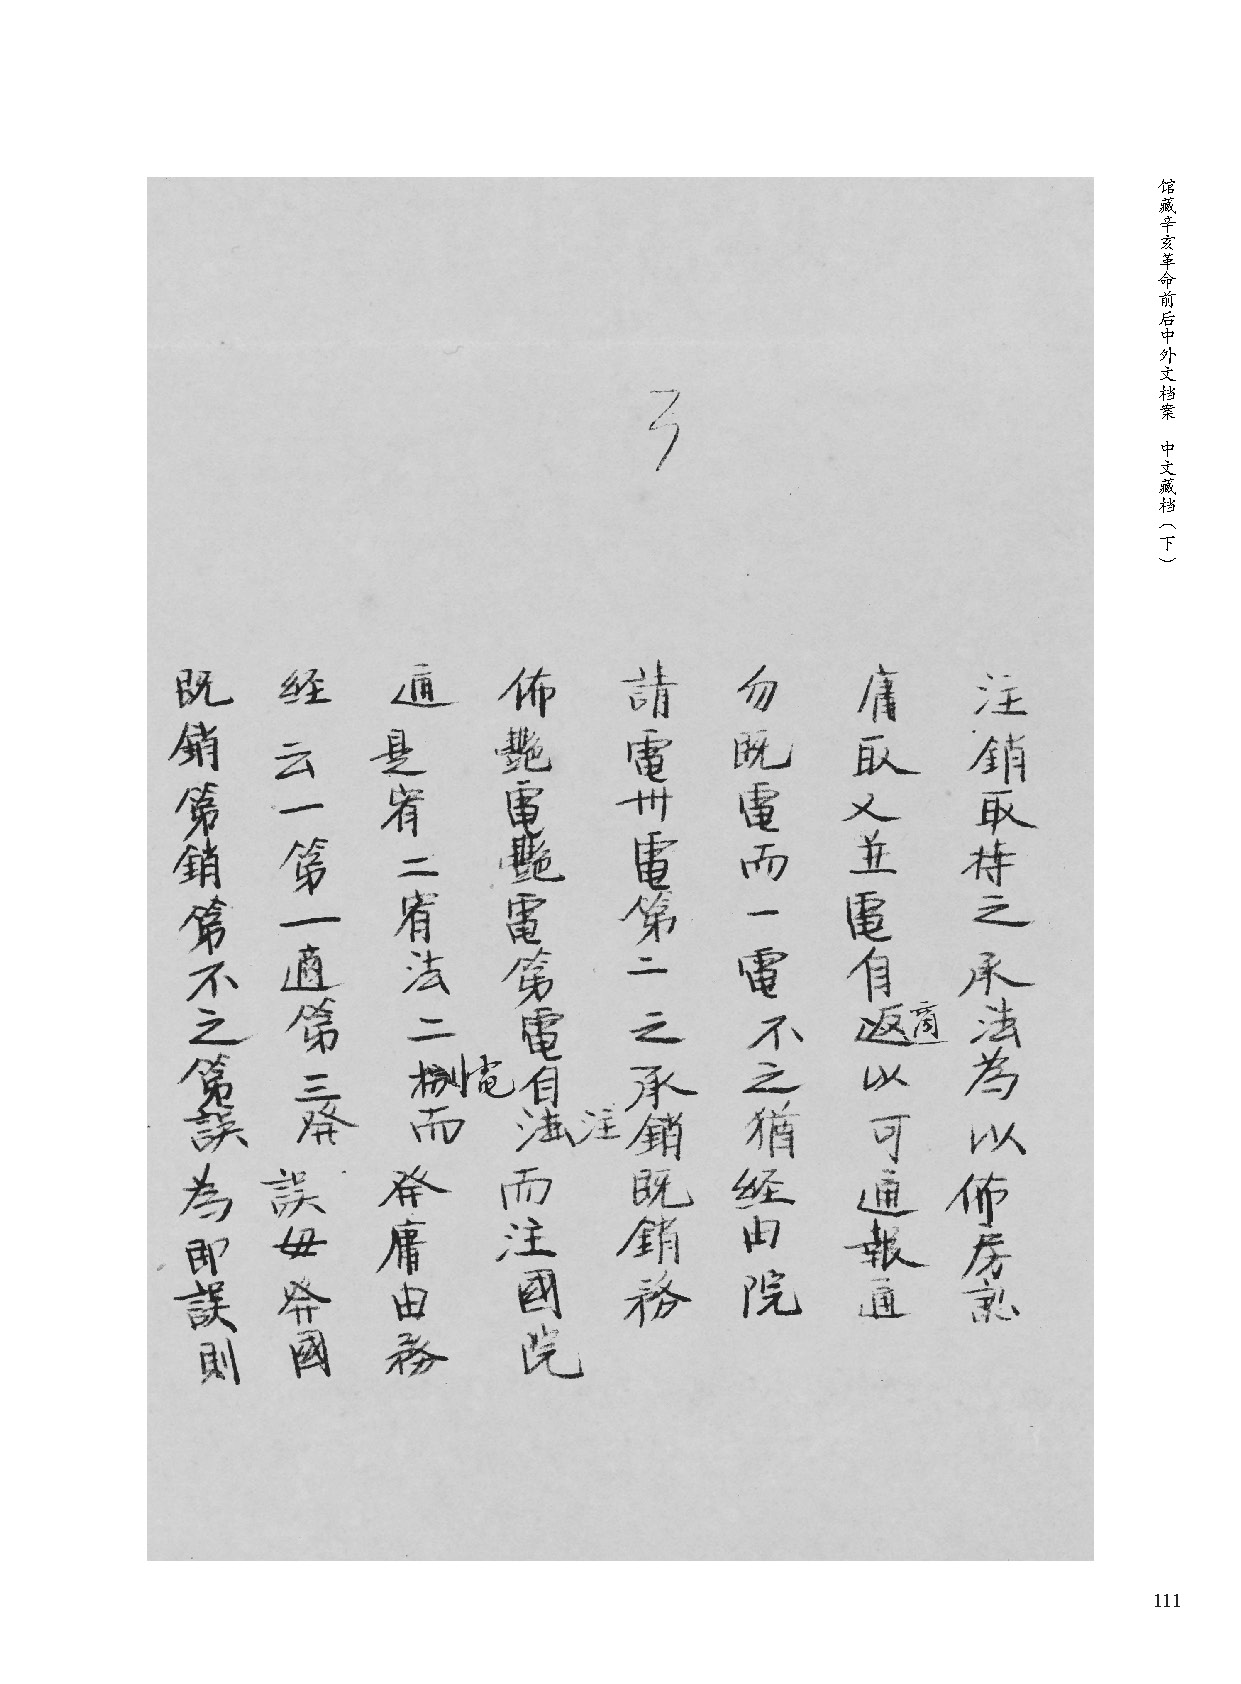 馆藏辛亥革命前后中外文档案 中文藏档（下）
3
注銷取持之承法為以佈房
庸取义並電自返商以可通報通
勿既電而一電不之猶經由院
請電卅電第二之承銷既銷務
佈艷電艷電第電自法注而注國院
通是省二省法二電而發庸由務
經云一第一適第三發誤毋發國
既銷第銷第不之第誤為即誤則
111